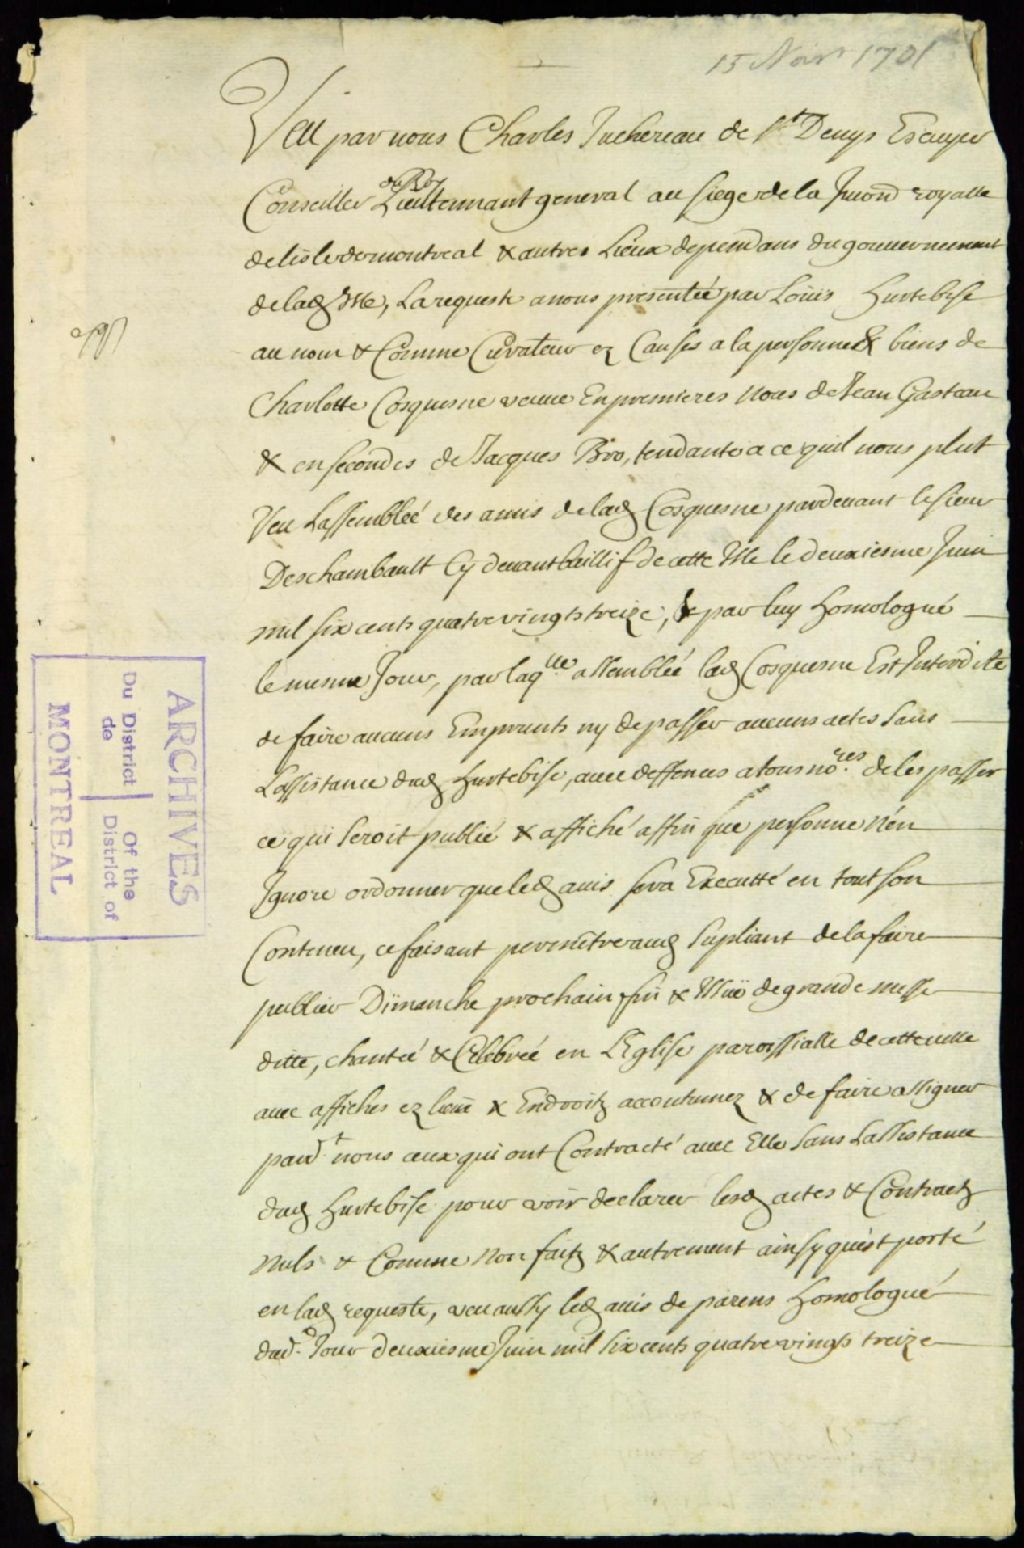 15 Novr 1701
Veu par nous Charles Juchereau de St Denys Escuyer
Conseiller du Roy Lieutennant general au siege de la Jurion royalle
de lisle de montreal & autres Lieux dependans du gouvernement
de lad Isle, La requeste a nous presentée par Loüis Hurtebise
au nom & Comme Curateur ez Causes a la personne & biens de
Charlotte Cosquesne veuue En premieres Noces de Jean Gasteau
& en secondes de Jacques Bro, tendante a ce quil nous plut
Veu Lassemblée des amis de lad Cosquesne pardeuant le sieur
Deschambault Cy deuant baillif de cette Isle le deuxiesme Juin
mil six cents quatre vingts treize, & par luy Homologué
le mesme Jour, par laqlle assemblée lad Cosquesne Est Interdite
de faire aucuns Emprunts ny de passer aucuns actes sans
Lassistance dud Hurtebise, auec deffences a tous nores de les passer
ce qui seroit publié & affiché affin que personne nén
Ignore ordonner que led auis sera Executté en tout son
Conteneu, ce faisant permettre aud supliant de la faire
publier Dimanche prochain fin & Issuë de grande messe
ditte, chantée & Celebrée en L'Eglise paroissialle de cette ville
auec affiches ez lieux & Endroitz accoutumez & de faire assigner
pardt nous ceux qui ont Contracté auec Elle sans Lassistance
dud Hurtebise pour voir declarer lesd actes & Contractz
Nuls & Comme Non faitz & autrement ainsy quést porté
en lad requeste, veu aussy led auis de parens Homologué
dud Jour deuxiesme Juin mil six cents quatre vingts treize
ARCHIVES
Du District Of the
de District of
MONTREAL